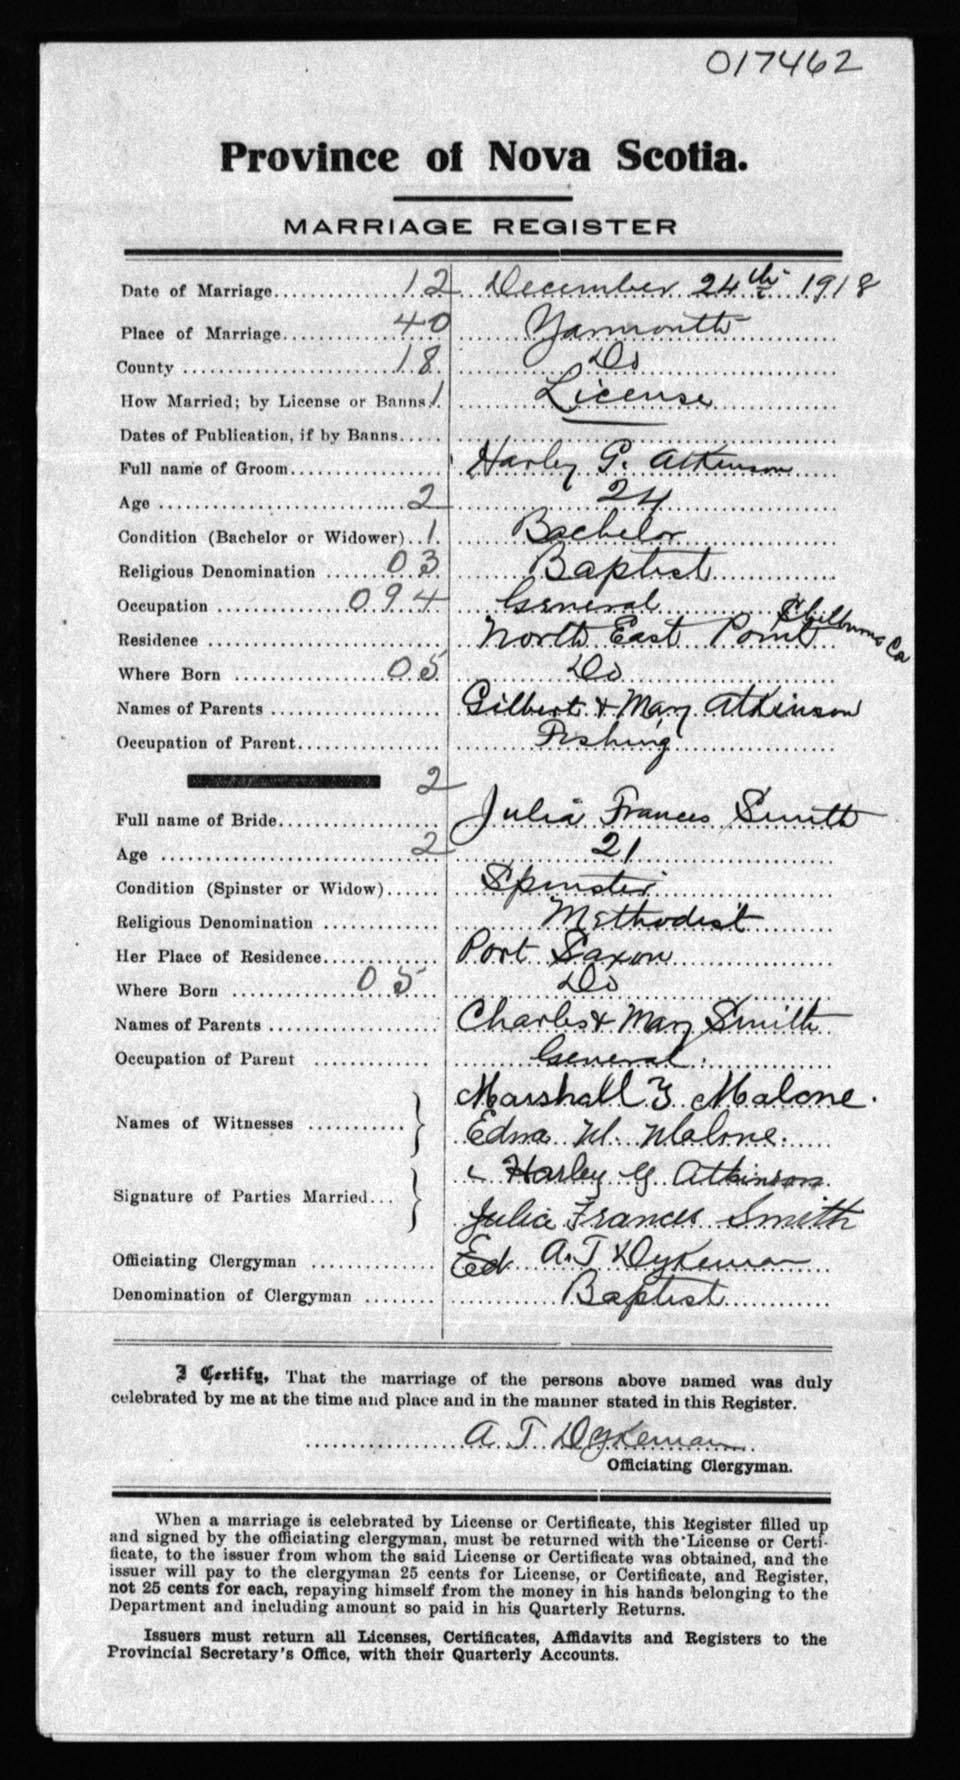 017462
Province of Nova Scotia.
MARRIAGE REGISTER
Date of Marriage 12 December 24th 1918
Place of Marriage 40 Yarmouth
County 18 Do
How Married; by License or Banns 1 License
Dates of Publication, if by Banns
Full name of Groom Harley G. Atkinson
Age 2 24
Condition (Bachelor or Widower) 1 Bachelor
Religious Denomination 03 Baptist
Occupation 094 General
Residence North East Point Shelburne Co
Where Born 05 Do
Names of Parents Gilbert & Mary Atkinson
Occupation of Parent Fishing
2
Full name of Bride Julia Frances Smith
Age 2 21
Condition (Spinster or Widow) Spinster
Religious Denomination Methodist
Her Place of Residence Port Saxon
Where Born 05 Do
Names of Parents Charles & Mary Smith
Occupation of Parent General
Names of Witnesses Marshall Malone.
Edna M. Malone.
Signature of Parties Married Harley G Atkinson
Julia Frances Smith
Officiating Clergyman A. T Dykeman
Denomination of Clergyman Baptist
I Certify, That the marriage of the persons above named was duly
celebrated by me at the time and place and in the manner stated in this Register.
A T Dykeman
Officiating Clergyman.
When a marriage is celebrated by License or Certificate, this Register filled up
and signed by the officiating clergyman, must be returned with the License or Certi-
ficate, to the issuer from whom the said License or Certificate was obtained, and the
issuer will pay to the clergyman 25 cents for License, or Certificate, and Register,
not 25 cents for each, repaying himself from the money in his hands belonging to the
Department and including amount so paid in his Quarterly Returns.
Issuers must return all Licenses, Certificates, Affidavits and Registers to the
Provincial Secretary's Office, with their Quarterly Accounts.